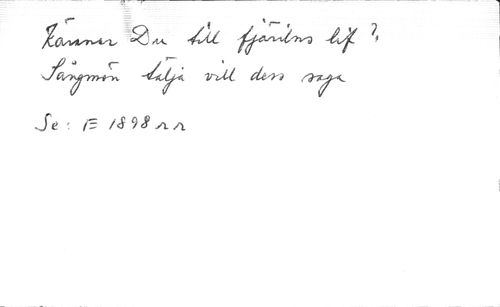 Känner Du till fjärilns lif?
Sångmön tälja vill dess saga
Se: E 1898 r r